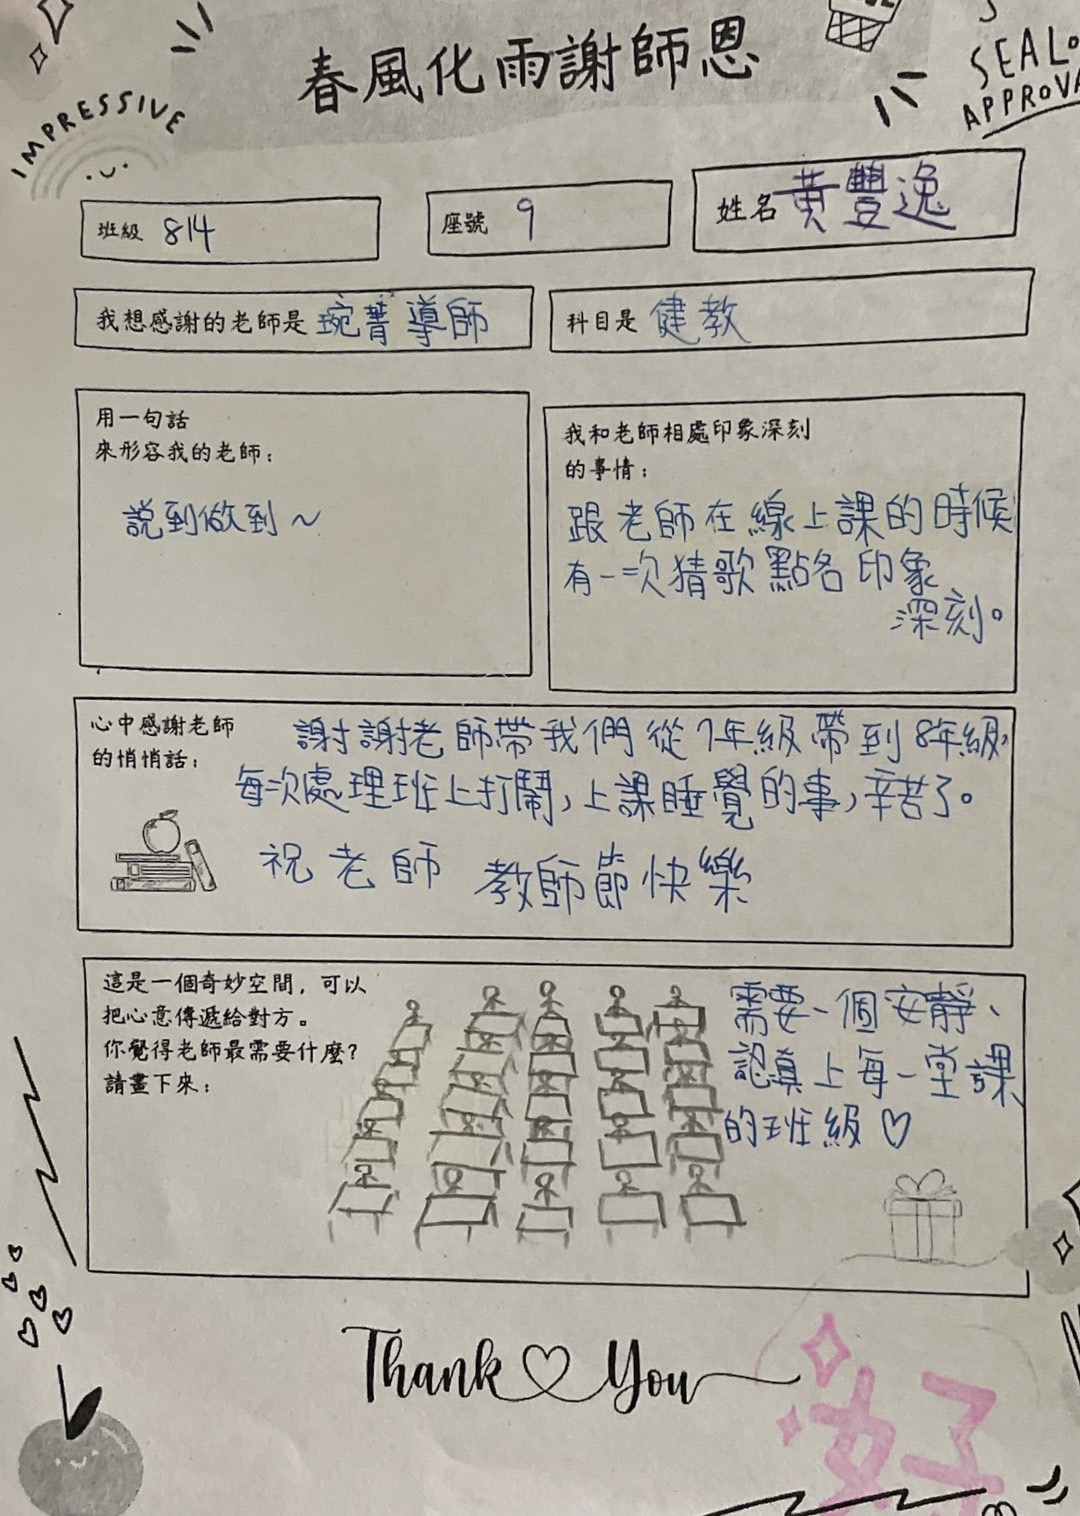 春風化雨謝師恩
IMPRESSIVE
SEAL O
APPROVA
班級 814
座號 9
姓名 黃豐逸
我想感謝的老師是 琬菁導師
科目是 健教
用一句話
來形容我的老師：
說到做到～
我和老師相處印象深刻
的事情：
跟老師在線上課的時候
有一次猜歌點名印象
深刻。
心中感謝老師
的悄悄話：
謝謝老師帶我們從7年級帶到8年級，
每次處理班上打鬧，上課睡覺的事，辛苦了。
祝老師 教師節快樂
這是一個奇妙空間，可以
把心意傳遞給對方。
你覺得老師最需要什麼？
請畫下來：
需要一個安靜、
認真上每一堂課
的班級♡
Thank You
好